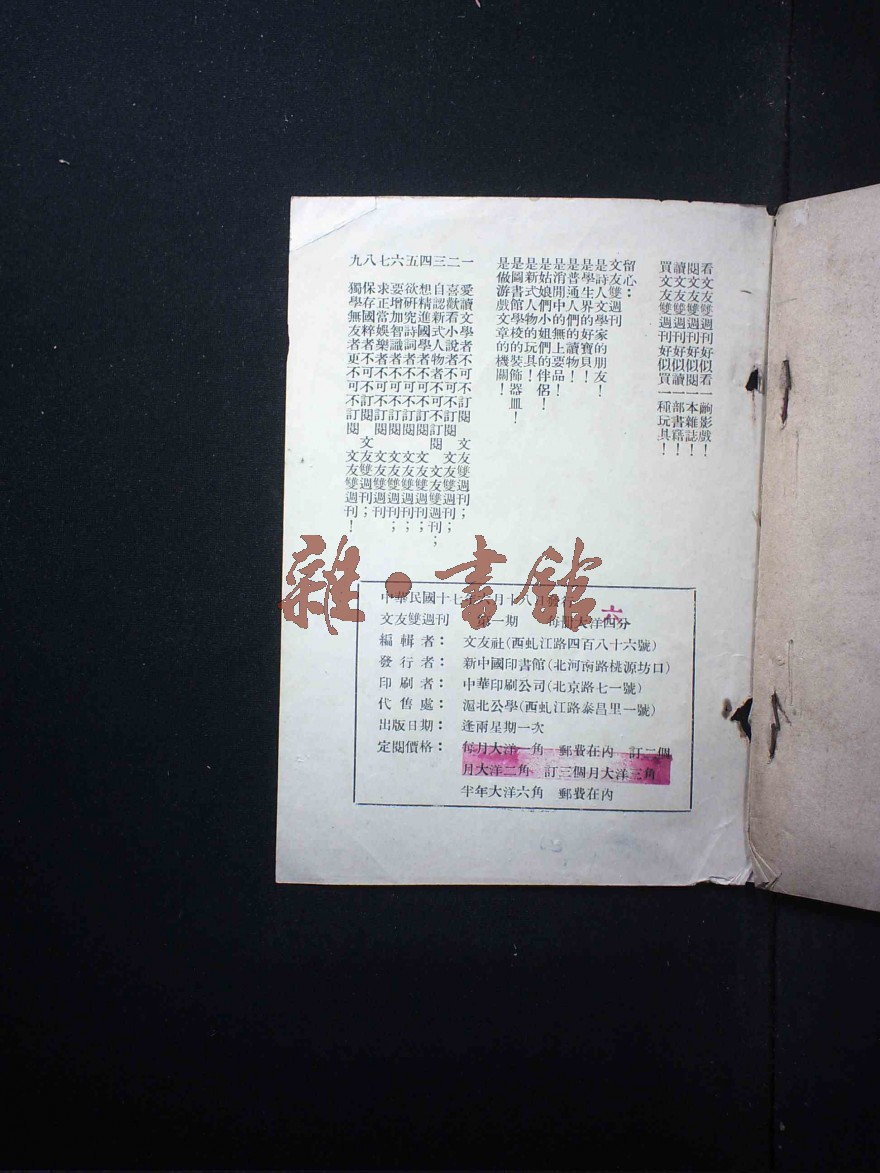 看文友雙週刊好似看一齣影戲！
閱文友雙週刊好似閱一本雜誌！
讀文友雙週刊好似讀一部書籍！
買文友雙週刊好似買一種玩具！
留心：
文友雙週刊
是詩人文學家的朋友！
是學生界的好寶貝！
是普通人們的讀物！
是消閒中無上要品！
是姑娘們小姐們的伴侶！
是新式人物的玩具！
是圖書館學校的裝飾器皿！
是做游戲文章的機關！
一 愛讀文學者不可不訂閱 文友雙週刊；
二 喜歡看小說者不可不訂閱 文友雙週刊；
三 自認新式人物者不可不訂閱 文友雙週刊；
四 想精進國學者不可不訂閱 文友雙週刊；
五 欲研究詩詞者不可不訂閱 文友雙週刊；
六 要增加智識者不可不訂閱 文友雙週刊；
七 求正當娛樂者不可不訂閱 文友雙週刊；
八 保存國粹者不可不訂閱 文友雙週刊；
九 獨學無友者更不可不訂閱 文友雙週刊！
雜·書館
中華民國十七年 月十八日發行
文友雙週刊 第一期 每冊大洋四分
六
編輯者： 文友社(西虬江路四百八十六號)
發行者： 新中國印書館(北河南路桃源坊口)
印刷者： 中華印刷公司(北京路七一號)
代售處： 滬北公學(西虬江路泰昌里一號)
出版日期： 逢兩星期一次
定閱價格： 每月大洋一角 郵費在內 訂二個
月大洋二角 訂三個月大洋三角
半年大洋六角 郵費在內